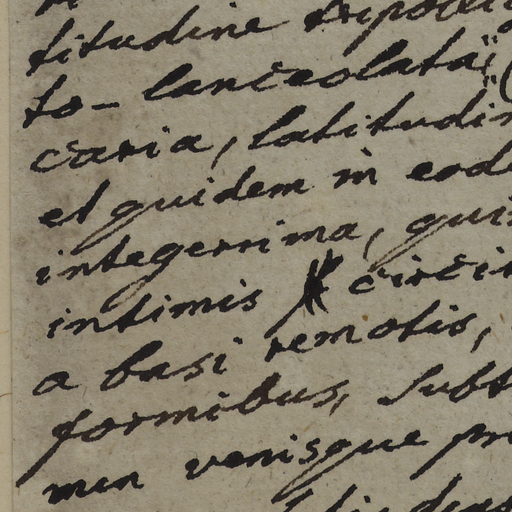 titudine
to-lanceolata;
caria, latitudin
et quidem in eod
integerrima, qui
intimis circin
a basi remotis,
formibus, subt
mur venisque pr